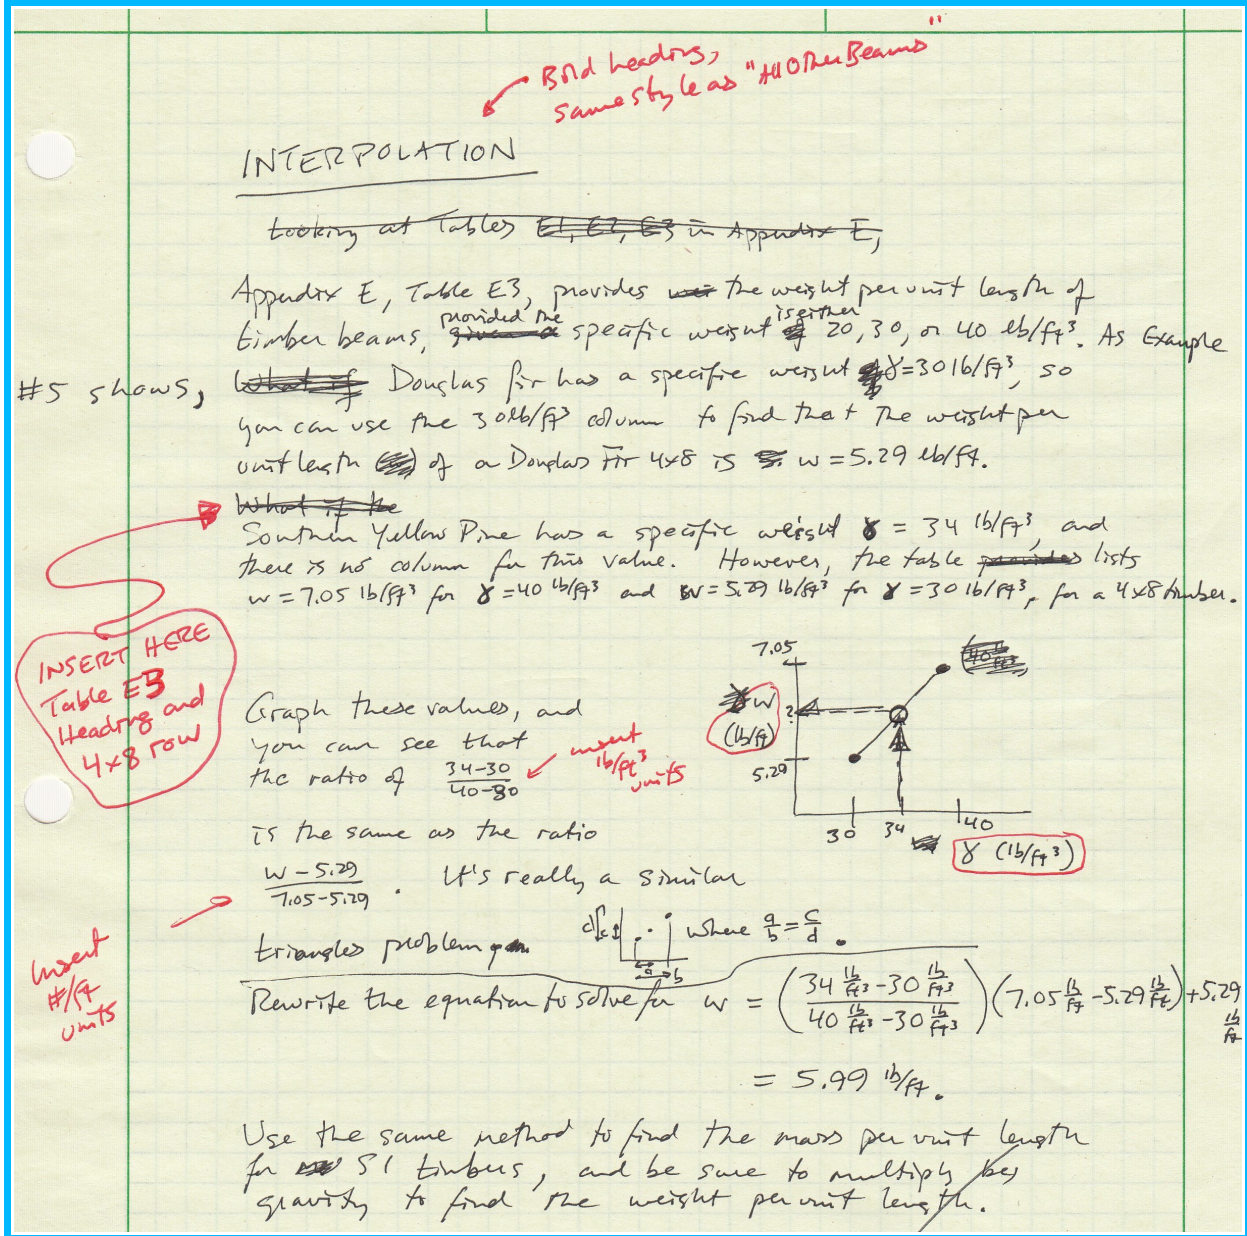 "
Bold heading,
same style as "All Other Beams
INTERPOLATION
Looking at Tables E1, E2, E3 in Appendix E,
Appendix E, Table E3, provides the weight per unit length of
provided the is either
timber beams, given a specific weight 20, 30, or 40 lb/ft³. As Example
#5 shows, What if Douglas fir has a specific weight γ=30 lb/ft³, so
you can use the 30 lb/ft³ column to find that the weight per
unit length of a Douglas Fir 4x8 is w = 5.29 lb/ft.
What if the
Southern Yellow Pine has a specific weight γ = 34 lb/ft³, and
there is no column for this value. However, the table provides lists
w = 7.05 lb/ft³ for γ = 40 lb/ft³ and w = 5.29 lb/ft³ for γ = 30 lb/ft³, for a 4x8 timber.
INSERT HERE
Table E3
Heading and
4x8 row
7.05
40 lb/ft³
w
?
(lb/ft)
5.29
30 34 40
γ (lb/ft³)
Graph these values, and
you can see that
the ratio of 34-30 / 40-30
insert
lb/ft³
units
is the same as the ratio
w - 5.29 / 7.05 - 5.29 . It's really a similar
insert
#/ft
units
triangles problem d c a b where a/b = c/d .
Rewrite the equation to solve for w = (34 lb/ft³ - 30 lb/ft³ / 40 lb/ft³ - 30 lb/ft³) (7.05 lb/ft - 5.29 lb/ft) + 5.29 lb/ft
= 5.99 lb/ft.
Use the same method to find the mass per unit length
for SI timbers, and be sure to multiply by
gravity to find the weight per unit length.